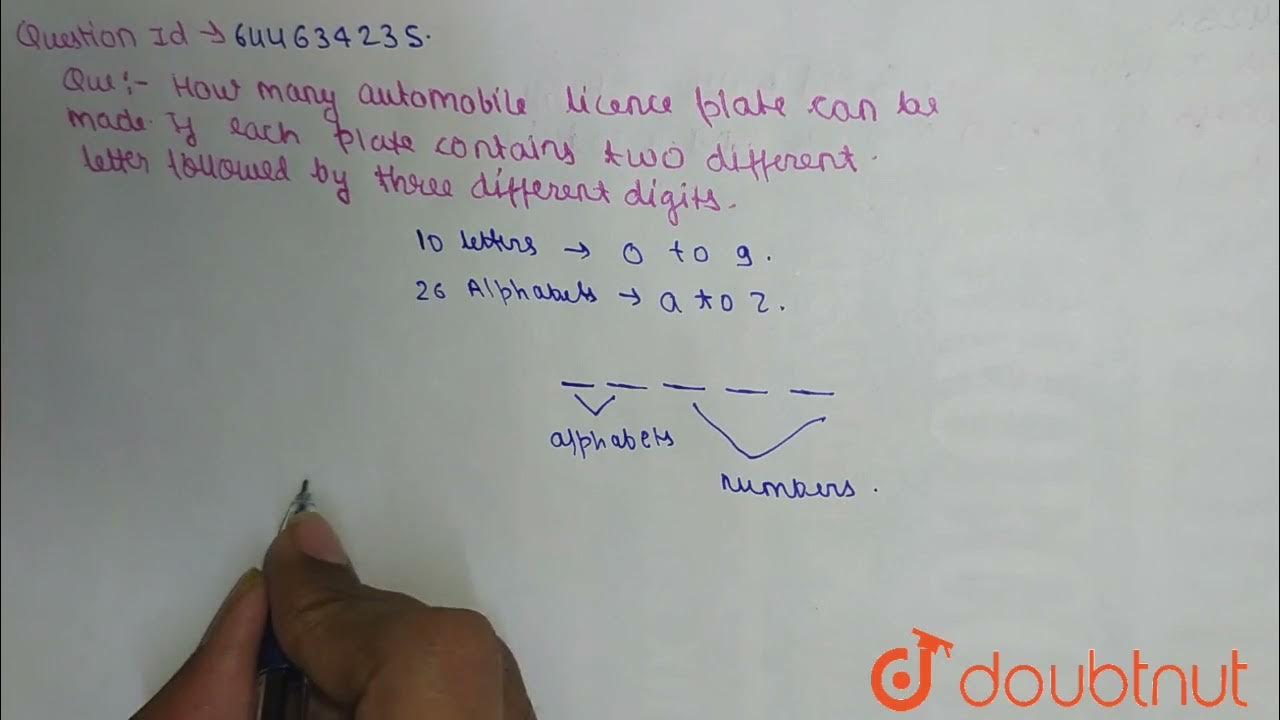 Question Id → 644634235.
Que:- How many automobile licence plate can be
made. If each plate contains two different.
letter followed by three different digits.
10 letters → 0 to 9.
26 Alphabets → a to z.
alphabets
numbers.
doubtnut